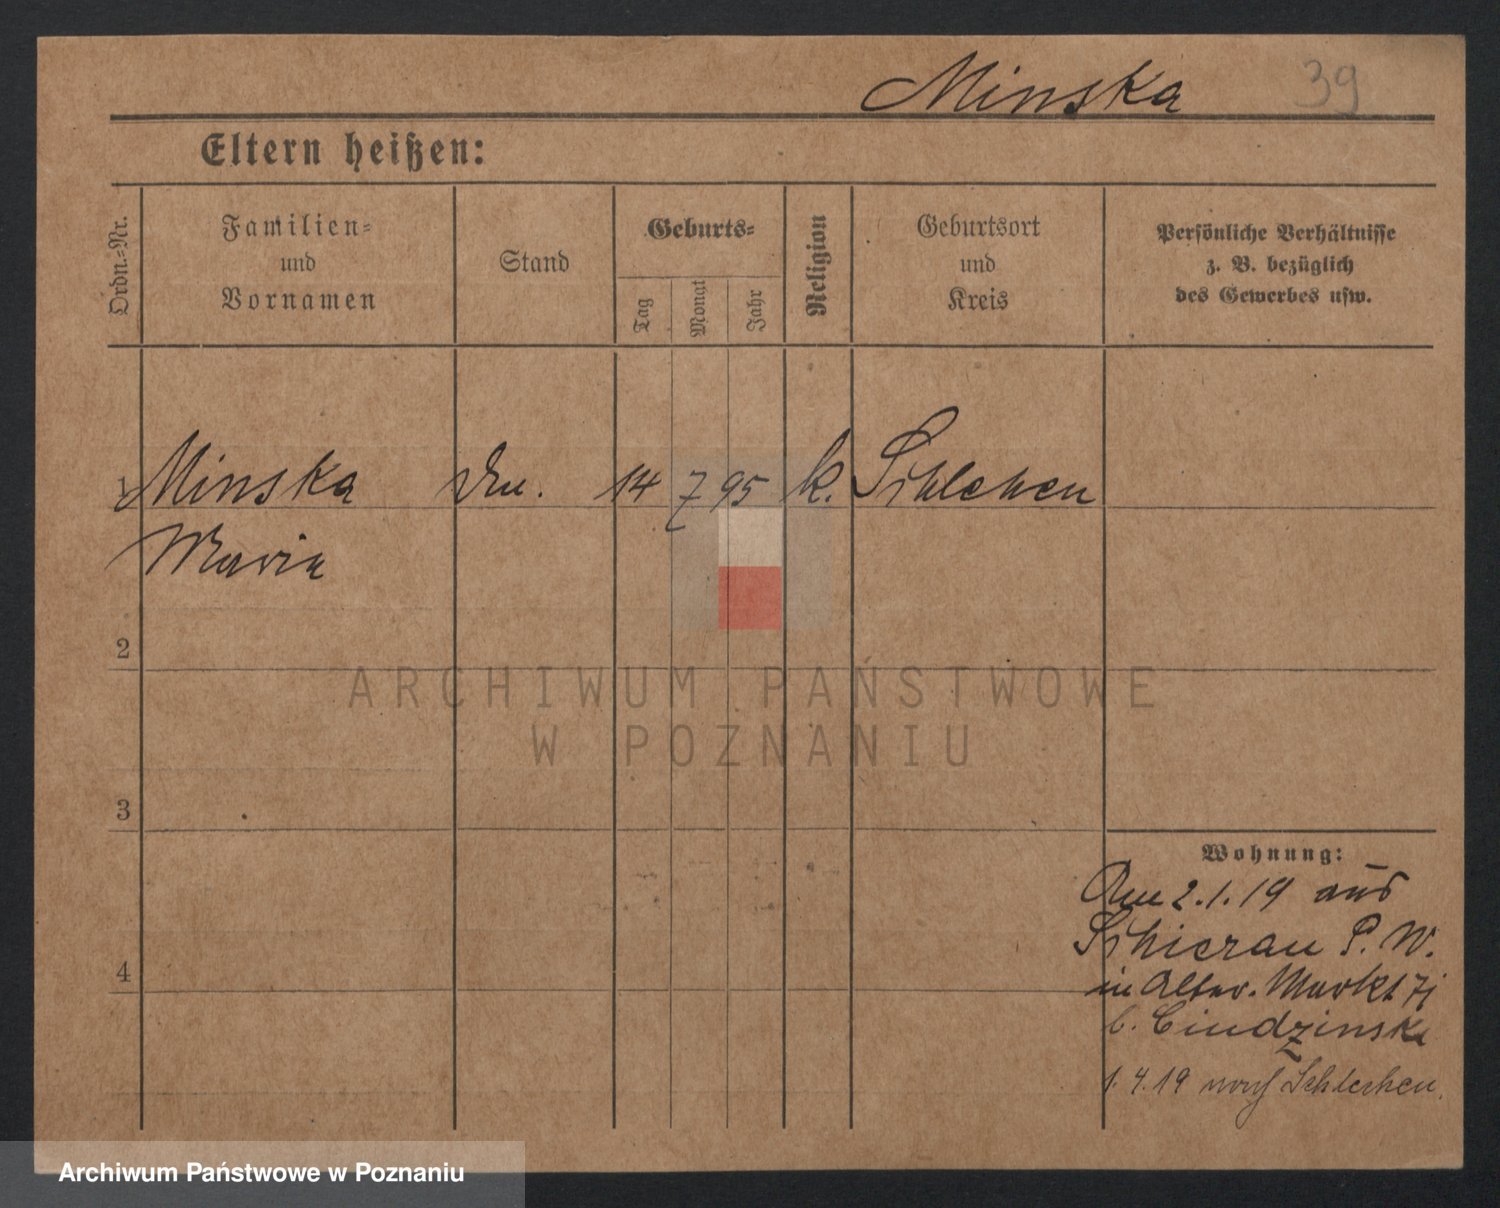 Minska 39
Eltern heißen:
Ordn.-Nr.
Familien-
und
Vornamen
Stand
Geburts-
Tag
Monat
Jahr
Religion
Geburtsort
und
Kreis
Persönliche Verhältnisse
z. B. bezüglich
des Gewerbes usw.
1 Minska 14 7 95 k. Schlehen
Maria
2
ARCHIWUM PAŃSTWOWE
W POZNANIU
3
Wohnung:
Am 2.1.19 aus
P. W.
in Alter. Markt
b.
4
1.4.19 nach Schlehen.
Archiwum Państwowe w Poznaniu